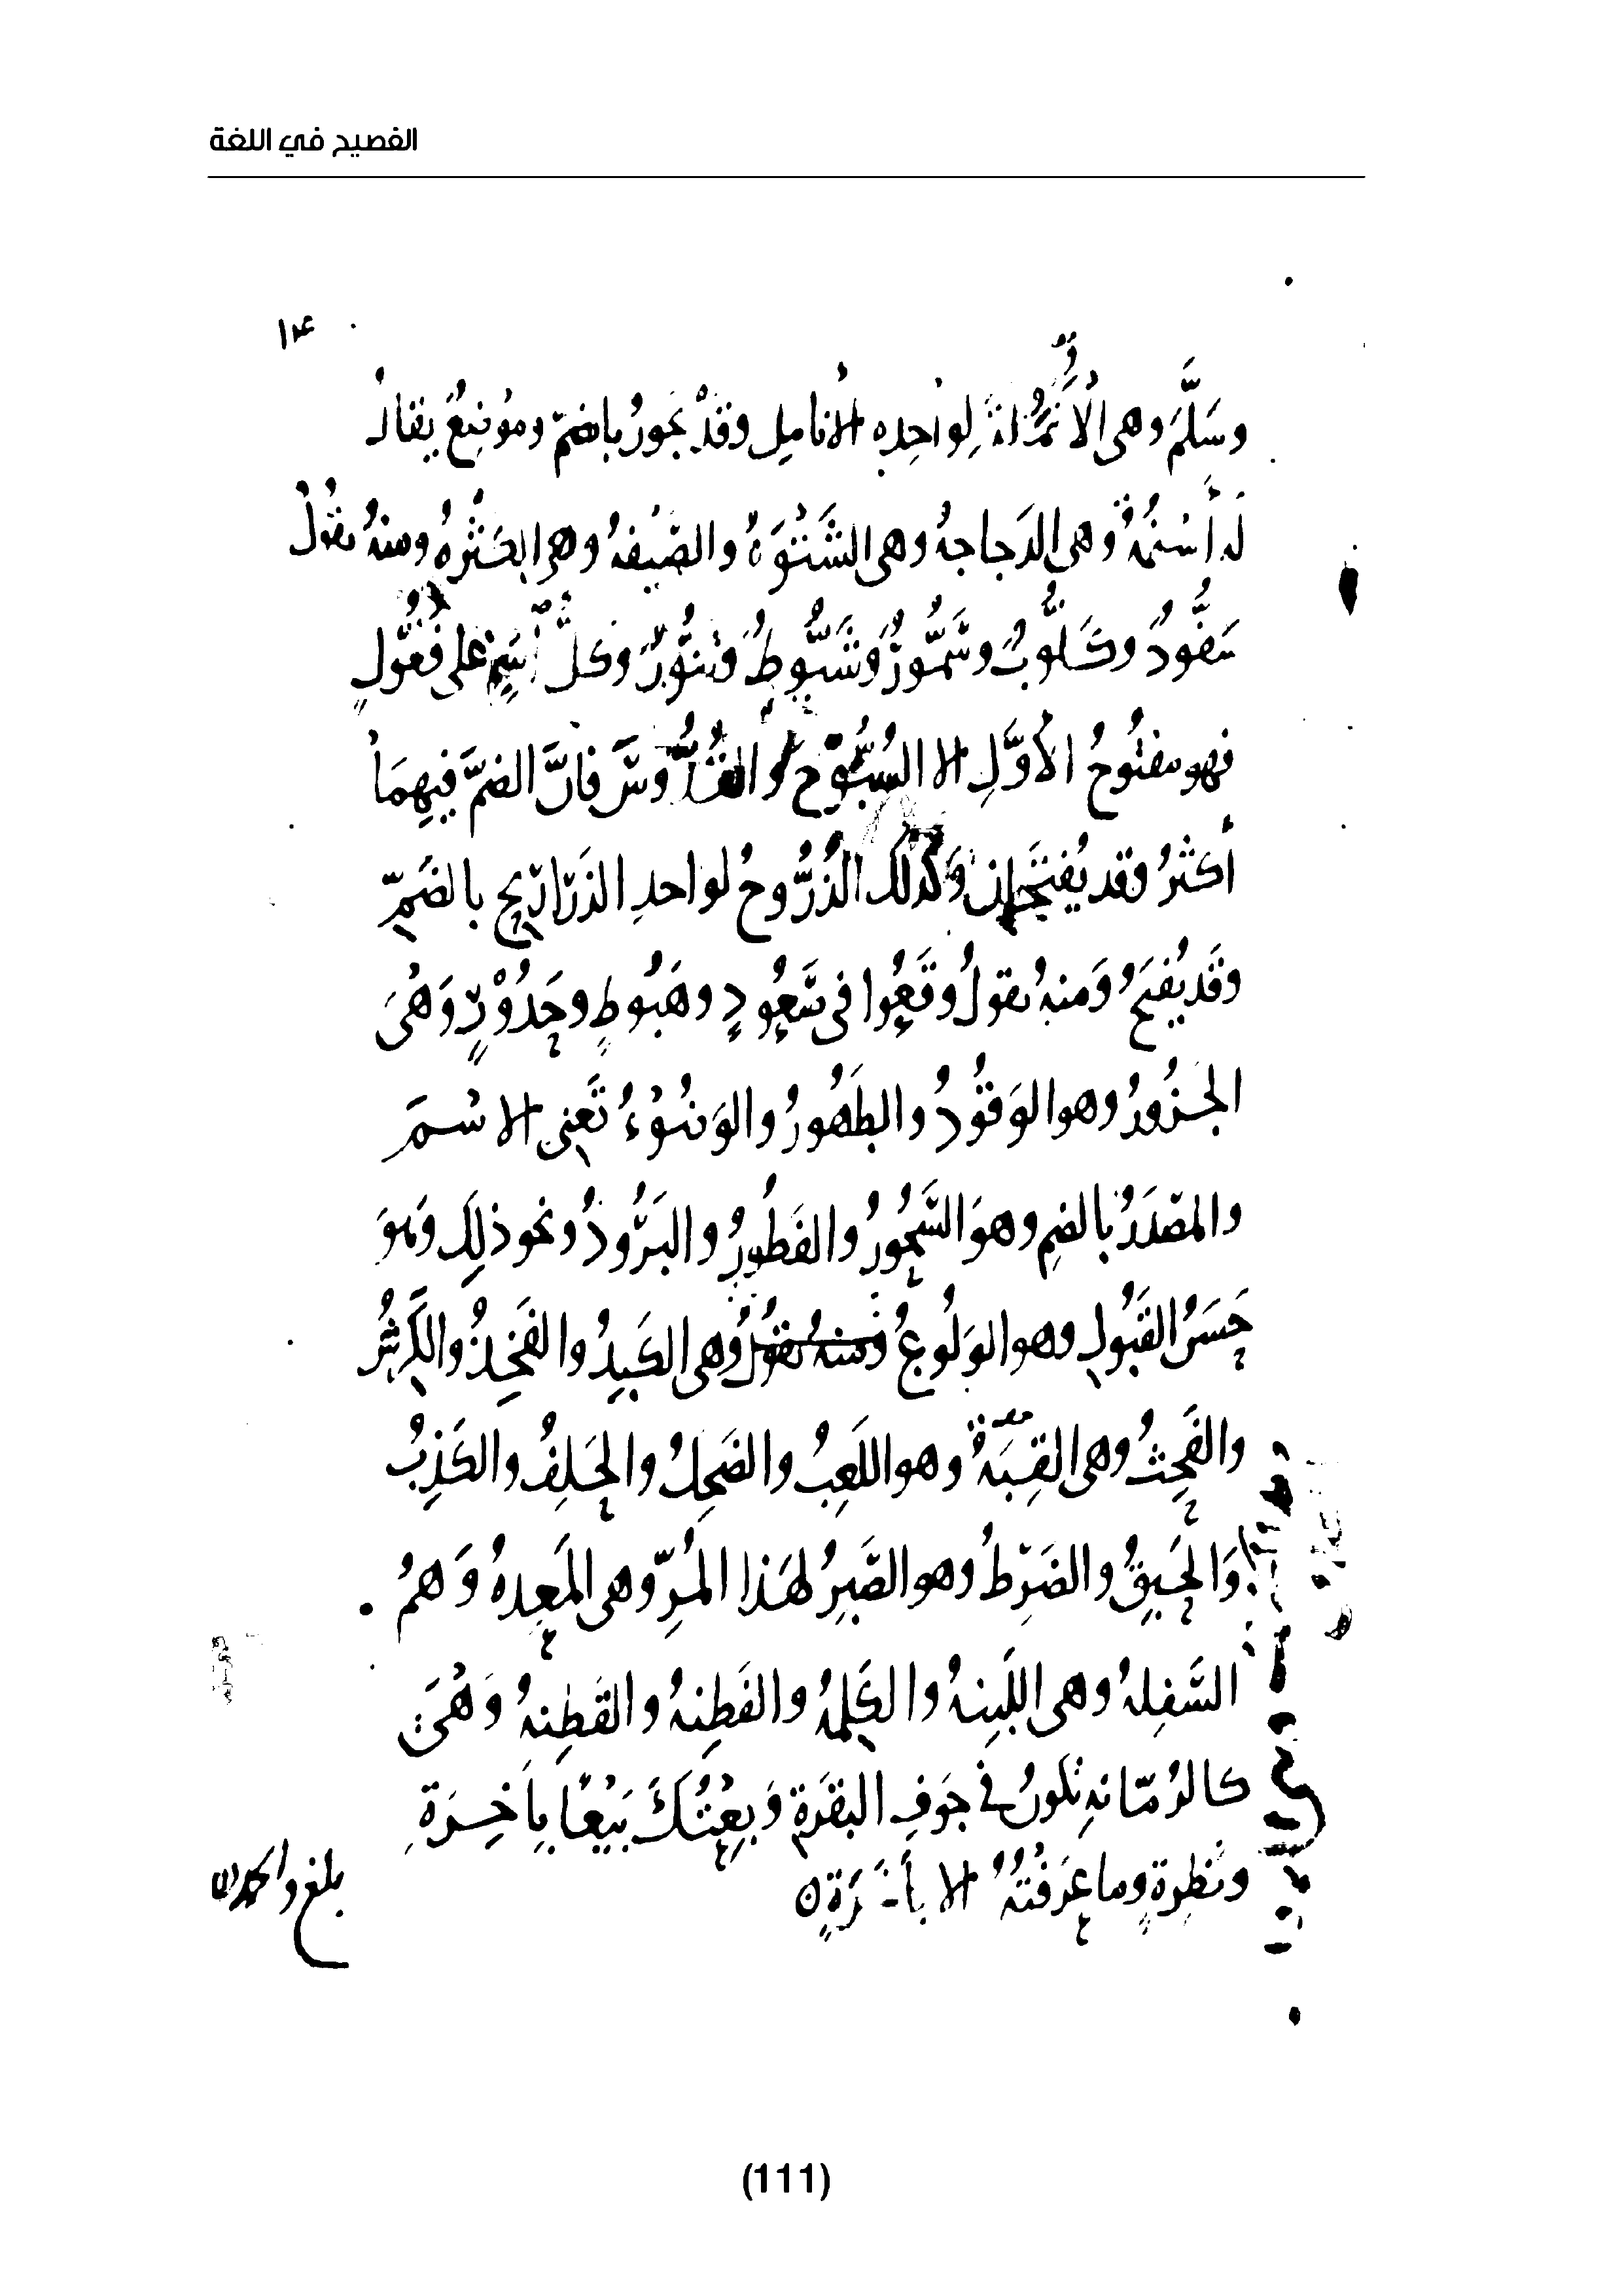 الفصيح في اللغة
١٤
وَسَلَّمَ وهى الأَنْمُلَةُ لِواحِدِه الأنامِل وقَدْ يَجوزُ بالضمّ وموْضِعٌ يقالُ
لهُ أَسْنُمَةُ وهى الدَجاجهُ وهى الشَتْوَةُ والصَيْفهُ وهى الكَثْرهُ ومنهُ تقُولُ
سَفُّودٌ وكَلُّوبٌ وسَمُّورٌ وشَبُّوطٌ وتَنُّورٌ وكلُّ اسْمٍ على فَعُّولٍ
فهو مفتُوحُ الأَوَّلِ الا السُبُّوحَ والقُدُّوسَ فانَّ الضمَّ فيهِمَا
أكثَرُ وقد يُفتَحانِ وكَذلك الذُرُّوحُ لواحدِ الذَرَاريح بالضَمِّ
وقَد يُفتَحُ وَمنهُ تقولُ وَقَعُوا في صَعُودٍ وهَبُوطٍ وحَدُوْرٍ وَهْىَ
الجَزُورُ وهو الوَقُودُ والطَهُورُ والوَضُوْءُ تَعنِى الاسْمَ
والمصْدَرُ بالضمِ وهوَ السَّحُورُ والفَطُورُ والبَرُودُ ونحو ذلِكَ وَهوَ
حَسَنُ القَبُولِ وهو الوَلُوعُ ومنهُ تقولُ وهى الكَبِدُ والفَخِذُ والكَرِشُ
والفَحِثُ وهى القِبَةُ وهو اللَعِبُ والضَحِكُ والحَلِفُ والكَذِبُ
وَالحَبِقُ والضَرِطُ وهو الصَّبِرُ لهَذا المُرِّ وهى المَعِدهُ وَهمُ
السَّفِلهُ وهى اللَبِنهُ والكَلِمهُ والفَطِنهُ والقَطِنهُ وَهْىَ
كالرُمّانهِ تكونُ في جَوفِ البقَرَةِ وَبِعْتُكَ بَيْعًا بِأَخِرَةٍ
ونَظِرةٍ وما عَرَفْتُهُ الا بأَخَرَةٍ ه
بلغ والحمد لله
(111)